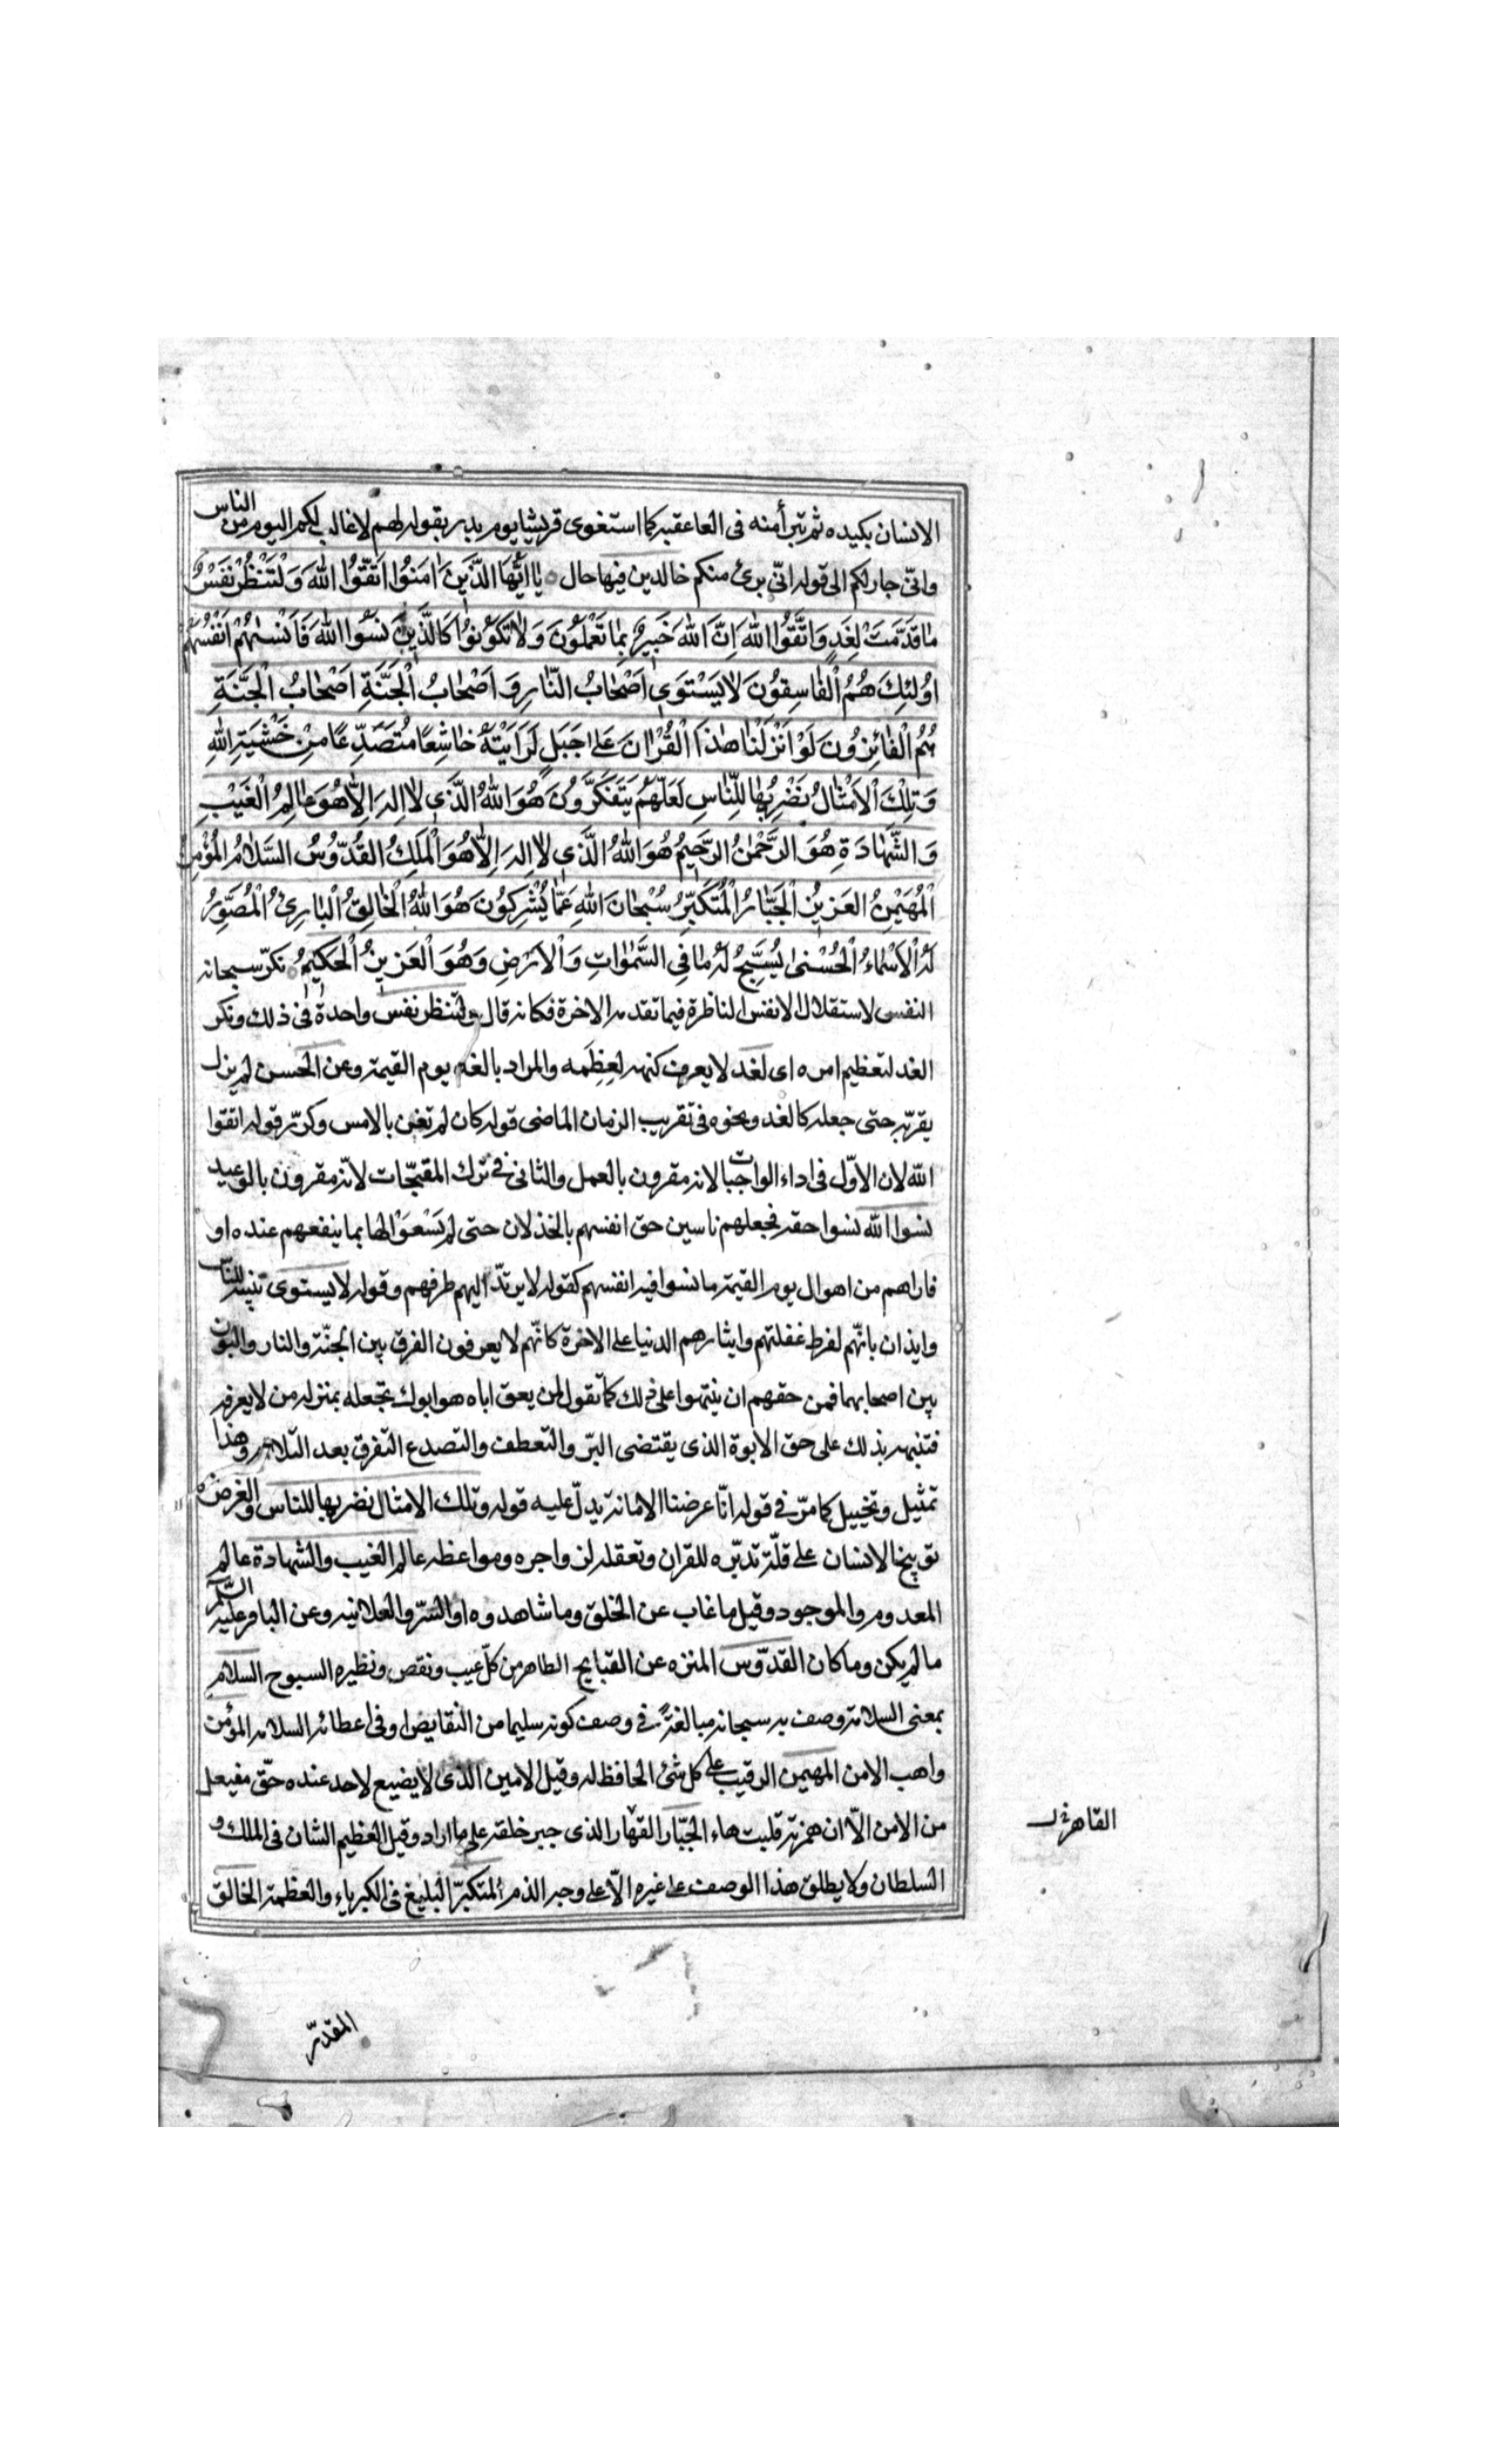 الانسان بكيده ثم تبرأ منه فى العاقبة كما استغوى قريشا يوم بدر بقوله لهم لا غالب لكم اليوم من الناس
وانّى جار لكم الى قوله انّى برئ منكم خالدين فيها حال يٰا اَيُّهَا الَّذينَ اٰمَنُوا اتَّقُوا اللّٰهَ وَلْتَنْظُرْ نَفْسٌ
مٰا قَدَّمَتْ لِغَدٍ وَاتَّقُوا اللّٰهَ اِنَّ اللّٰهَ خَبيرٌ بِمٰا تَعْمَلُونَ وَلاٰ تَكُونُوا كَالَّذينَ نَسُوا اللّٰهَ فَاَنْسٰيهُمْ اَنْفُسَهُمْ
اُولٰئِكَ هُمُ الْفٰاسِقُونَ لاٰ يَسْتَوى اَصْحٰابُ النّٰارِ وَ اَصْحٰابُ الْجَنَّةِ اَصْحٰابُ الْجَنَّةِ
هُمُ الْفٰائِزُونَ لَوْ اَنْزَلْنٰا هٰذَا الْقُرْاٰنَ عَلىٰ جَبَلٍ لَرَاَيْتَهُ خٰاشِعًا مُتَصَدِّعًا مِنْ خَشْيَةِ اللّٰهِ
وَتِلْكَ الْاَمْثٰالُ نَضْرِبُهٰا لِلنّٰاسِ لَعَلَّهُمْ يَتَفَكَّرُونَ هُوَ اللّٰهُ الَّذى لاٰ اِلٰهَ اِلاّٰ هُوَ عٰالِمُ الْغَيْبِ
وَ الشَّهٰادَةِ هُوَ الرَّحْمٰنُ الرَّحيمُ هُوَ اللّٰهُ الَّذى لاٰ اِلٰهَ اِلاّٰ هُوَ الْمَلِكُ الْقُدّوُسُ السَّلاٰمُ الْمُؤْمِنُ
الْمُهَيْمِنُ الْعَزيزُ الْجَبّٰارُ الْمُتَكَبِّرُ سُبْحٰانَ اللّٰهِ عَمّٰا يُشْرِكُونَ هُوَ اللّٰهُ الْخٰالِقُ الْبٰارِئُ الْمُصَوِّرُ
لَهُ الْاَسْمٰاءُ الْحُسْنىٰ يُسَبِّحُ لَهُ مٰا فِى السَّمٰوٰاتِ وَ الْاَرْضِ وَهُوَ الْعَزيزُ الْحَكيمُ نكّر سبحانه
النفس لاستقلال الانفس الناظرة فيما تقدمه للاخرة فكانه قال ولتنظر نفس واحدة فى ذلك ونكر
الغد لتعظيم امره اى لغد لا يعرف كنهه لعظمه والمراد بالغد يوم القيمة وعن الحسن لم يزل
يقرّبه حتى جعله كالغد ونحوه فى تقريب الزمان الماضى قوله كان لم تغن بالامس وكرّر قوله اتقوا
الله لان الاوّل فى اداء الواجبات لانه مقرون بالعمل والثانى فى ترك المقبّحات لانّه مقرون بالوعيد
نسوا الله نسوا حقه فجعلهم ناسين حق انفسهم بالخذلان حتى لم يَسْعَوْا لها بما ينفعهم عنده او
فاراهم من اهوال يوم القيمة ما نسوا فيه انفسهم كقوله لا يرتدّ اليهم طرفهم وقوله لا يستوى تنبيه للنّاس
وايذان بانّهم لفرط غفلتهم وايثارهم الدنيا على الاخرة كانّهم لا يعرفون الفرق بين الجنّة والنار والبون
بين اصحابهما فمن حقهم ان ينتبهوا على ذلك كما تقول لمن يعق اباه هو ابوك تجعله بمنزلة من لا يعرفه
فتنبهه بذلك على حق الابوة الذى يقتضى البرّ والتعطف والتصدع التفرق بعد التلاؤم وهذا
تمثيل وتخييل كما مرّ فى قوله انّا عرضنا الامانة يدلّ عليه قوله وتلك الامثال نضربها للناس والغرض
توبيخ الانسان على قلّة تدبّره للقران وتعقله لزواجره ومواعظه عالم الغيب والشهادة عالم
المعدوم والموجود وقيل ما غاب عن الخلق وما شاهدوه او السّر والعلانية وعن الباقر عليه السّلم
ما لم يكن وما كان القدّوس المنزه عن القبايح الطاهر من كلّ عيب ونقص ونظيره السبوح السلام
بمعنى السلامة وصف به سبحانه مبالغةً فى وصف كونه سليما من النقايص او فى اعطائه السلامة المؤمن
واهب الامن المهيمن الرقيب على كل شئ الحافظ له وقيل الامين الذى لا يضيع لاحد عنده حقّ مفيعل
من الامن الاّ ان همزته قلبت هاء الجبّار القهّار الذى جبر خلقه على ما اراد وقيل العظيم الشان فى الملك و
السلطان ولا يطلق هذا الوصف على غيره الاّ على وجه الذم المتكبّر البليغ فى الكبرياء والعظمة الخالق
المقدّر